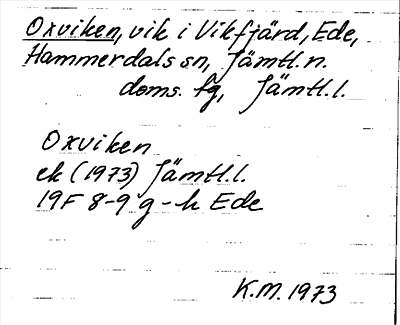 Oxviken, vik i Vikfjärd, Ede,
Hammerdals sn, Jämtl. n.
doms. fg, Jämtl. l.
Oxviken
ek (1973) Jämtl. l.
19F 8-9 g-h Ede
K.M. 1973